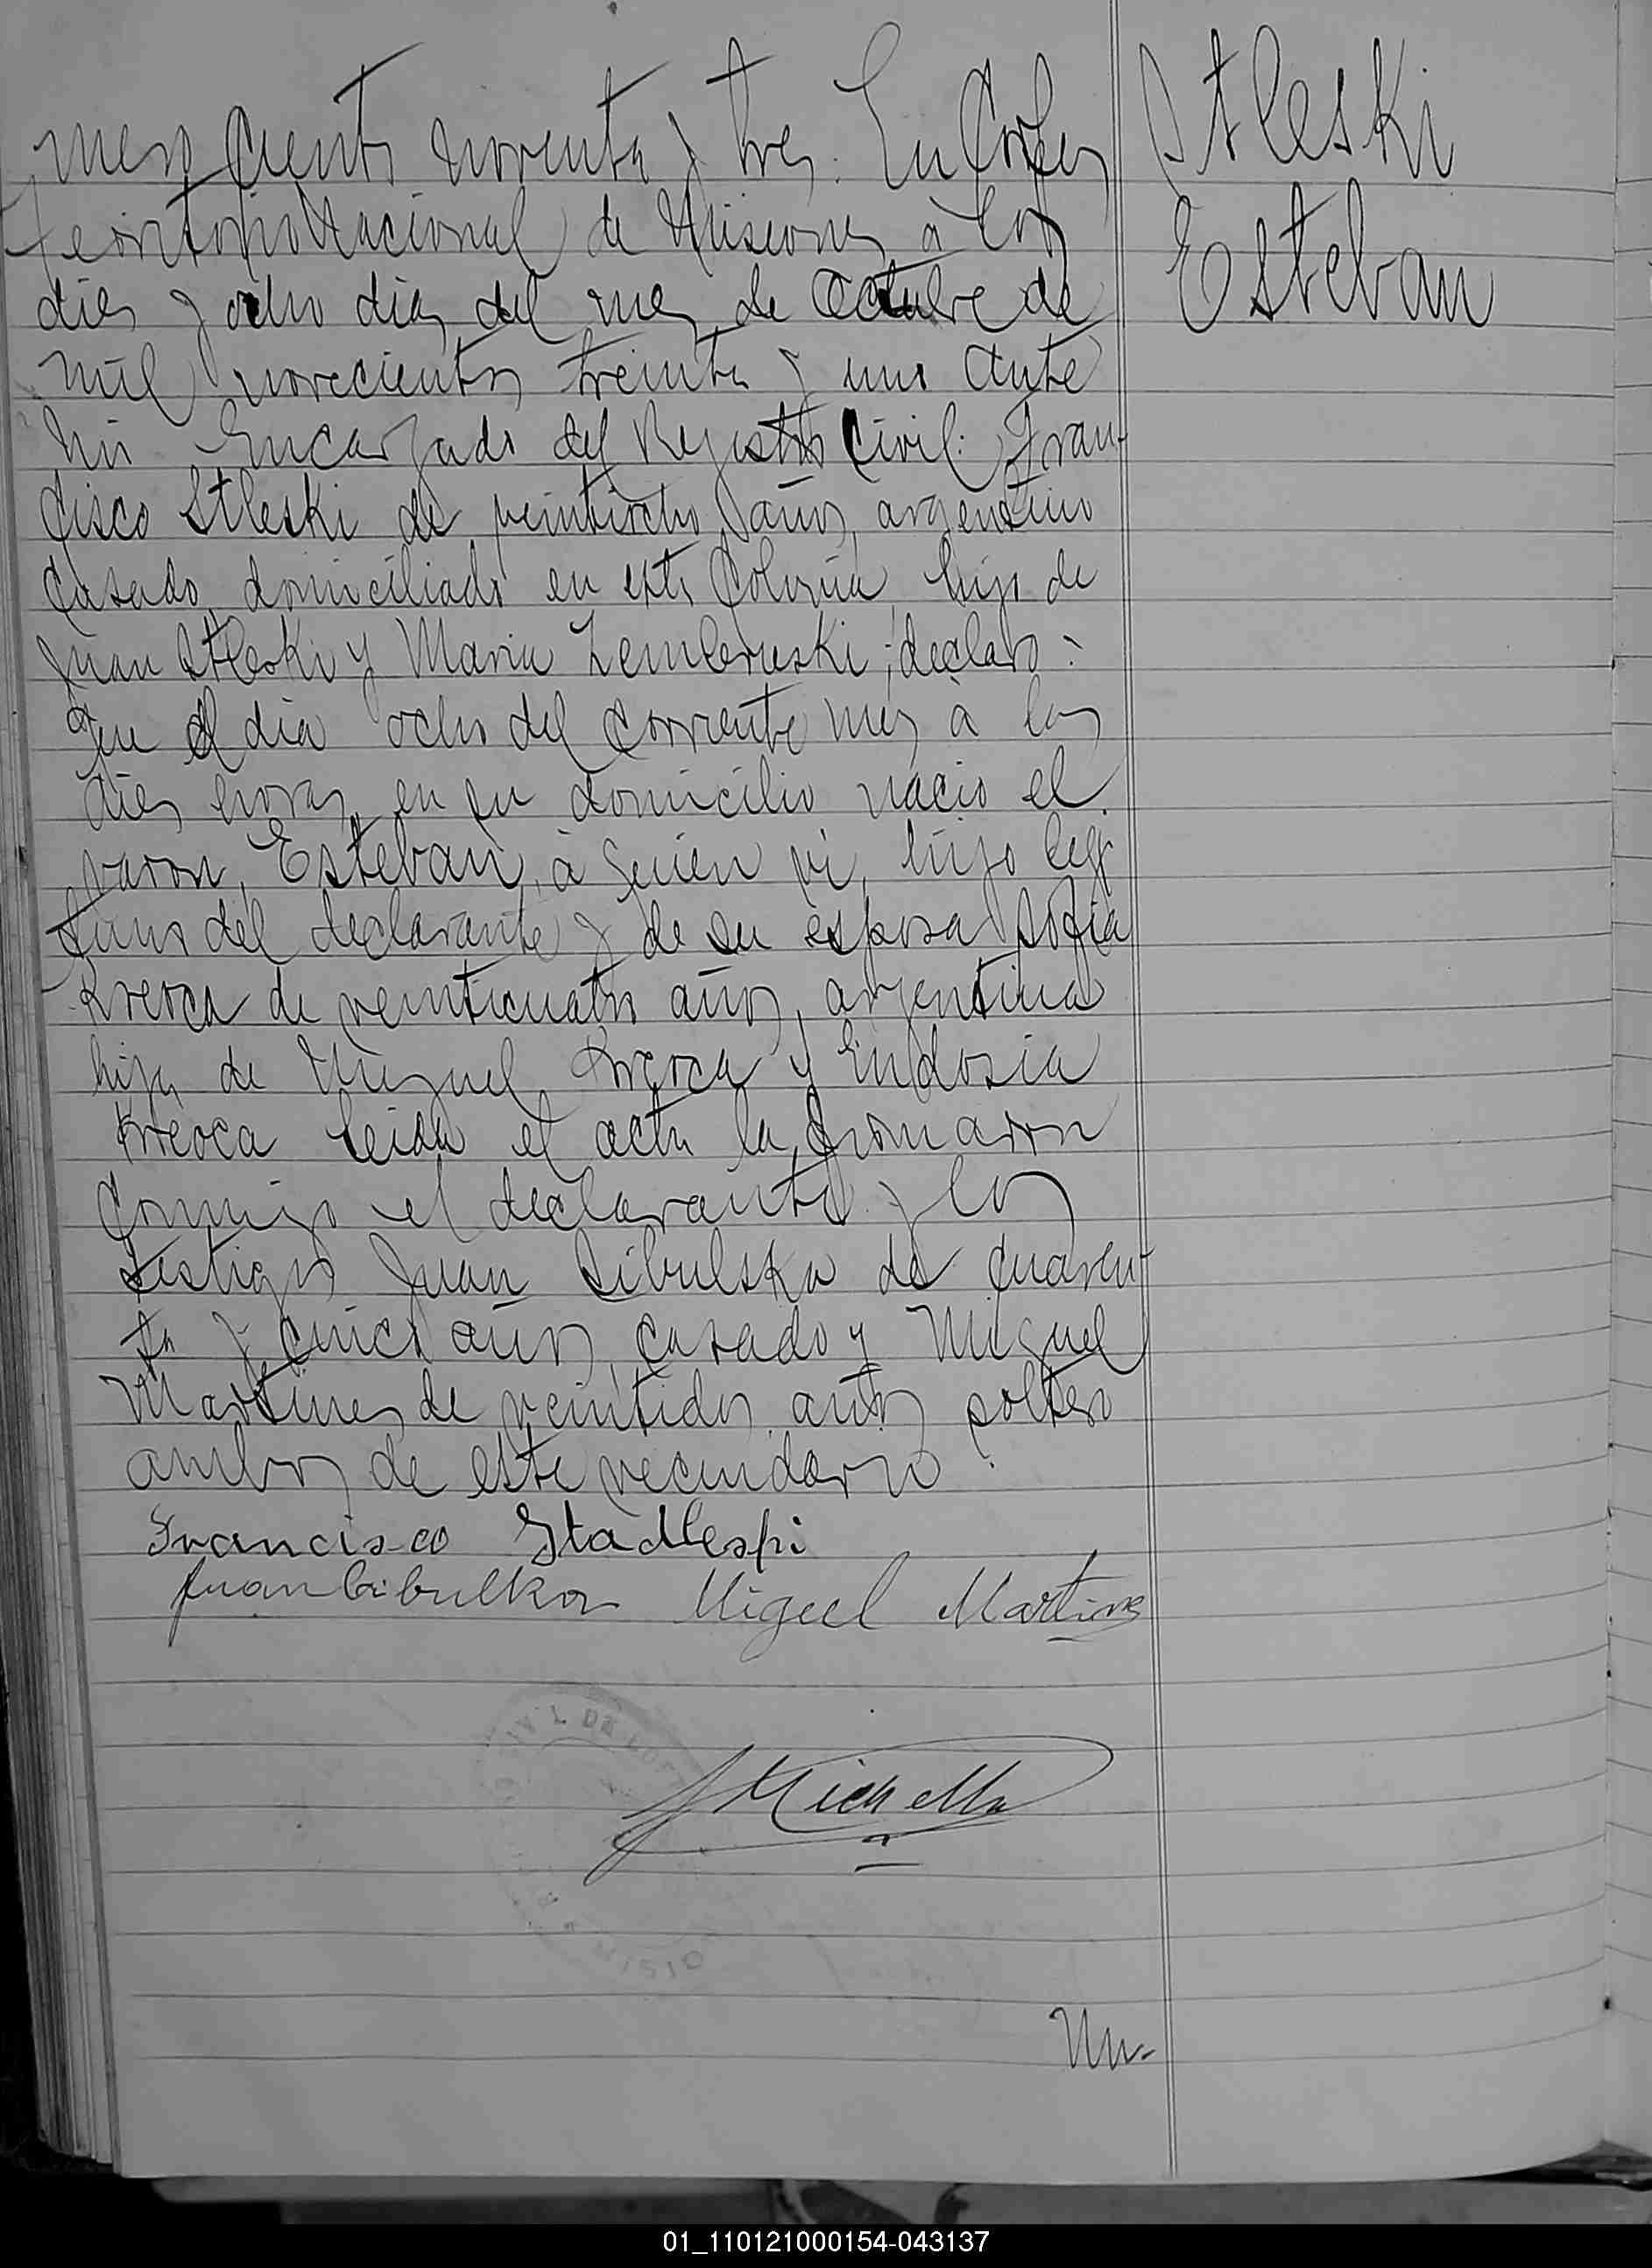 mero ciento noventa y tres. En
Stleski
Esteban
Territorio Nacional de Misiones à los
dies y ocho dias del mes de Octubre de
mil novecientos treinta y uno ante
mi Encargado del Registro Civil: Fran-
cisco Stleski de veintiocho años, argentino
casado, domiciliado en esta Colonia, hijo de
Juan Stleski y Maria ; declaro:
Que el dia ocho del corriente mes à las
dies horas, en su domicilio nacio el
varon, Esteban, à quien vi, hijo legi
timo del declarante y de su esposa Sofia
de veinticuatro años, argentina
hija de Miguel y
leida el acta la firmaron
conmigo el declarante y los
testigos Juan Sibulska de cuaren-
ta y cinco años, casado y Miguel
Martines de veintidos años soltero
ambos de este vecindario.
Francisco
Juan Cibulka Miguel Martines
Nu-
01_110121000154-043137